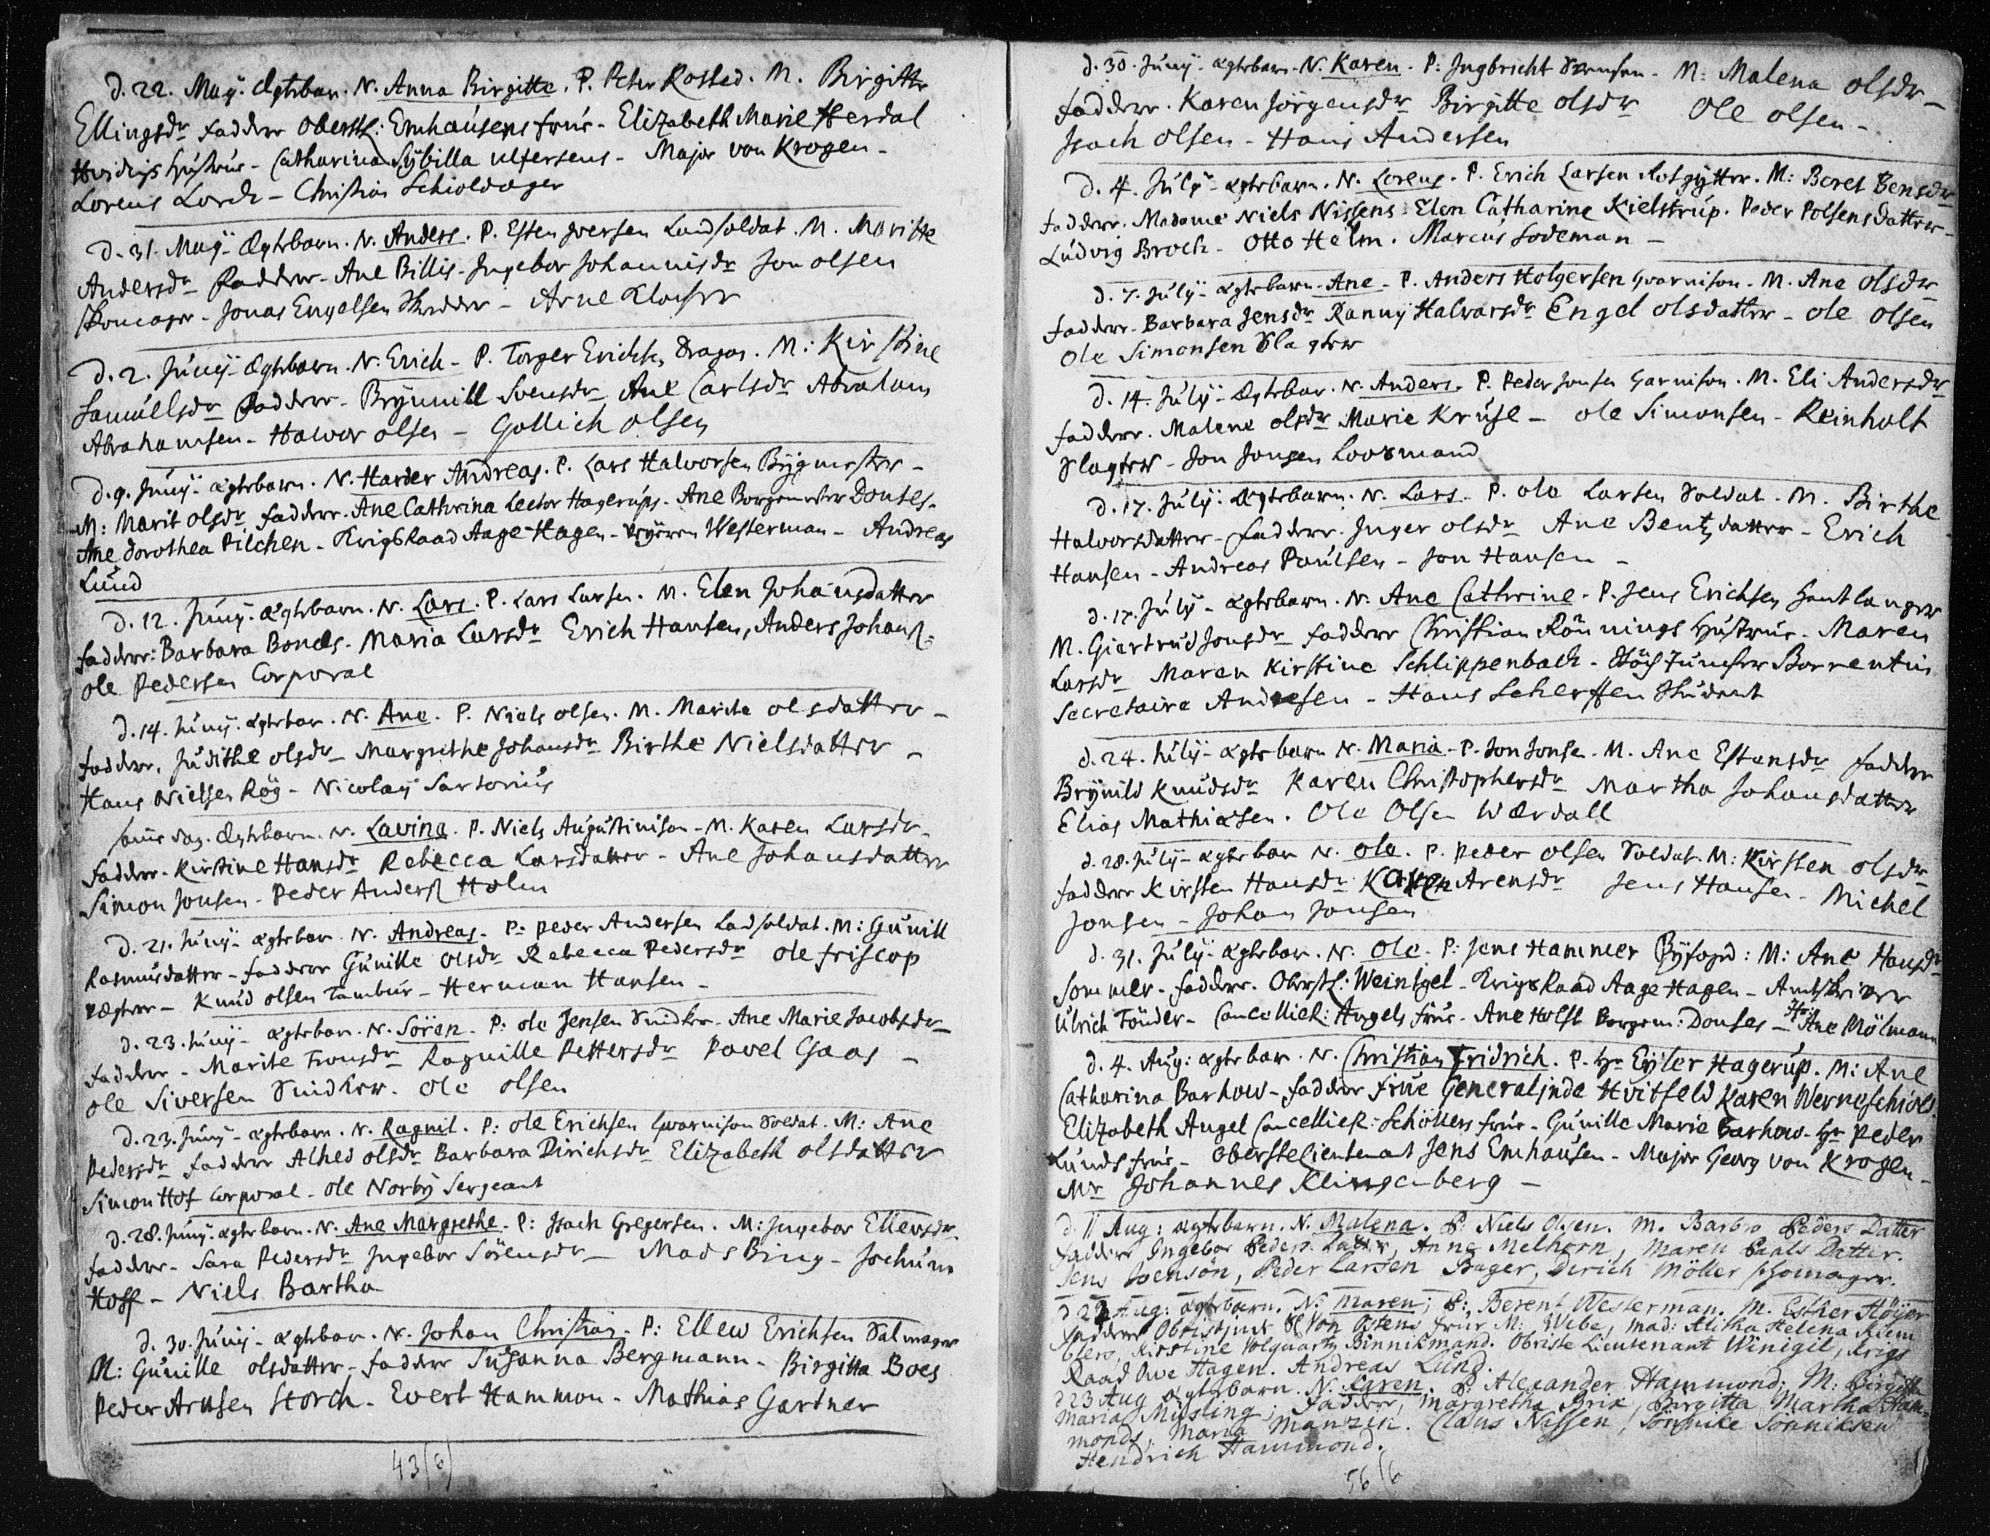 d. 22. Maÿ. Ægtebarn. N. Anna Birgitte. P. Peter Rosted. M. Birgitte
Ellingsdr Faddere Oberstl: Emhausens frue - Elizabeth Marie Herdal
Hustrue - Catharina Sÿbilla Ulfersens - Major von Krogen -
Lorens Lorck - Christian Schioldager
d. 31. Maÿ Ægtebarn. N. Anders. P. Esten Iversen Landsoldat. M. Maritte
Andersdr Faddere - Ane Billis - Ingebor Johannisdr Jon olsen
Skomager - Jonas Engelsen Skredder - Arne Klocker
d. 2. Junÿ Ægtebarn. N. Erich - P. Torger Erichsen Dragon. M: Kirstine
Samuelsdr Faddere - Brÿnnill Svensdr Ane Carlsdr Abraham
Abrahamsen - Halvor olsen - Gollich olsen
d. 9. Junÿ - ægtebarn. N. Harder Andreas. P. Lars Halvorsen Bÿgmester -
M: Marit olsdr Faddere. Ane Cathrina Lector Hagerups - Ane Borgemester Donses -
Ane dorothea Pilchen - KrigsRaad Aage Hagen - Westerman - Andreas
Lund
d. 12. Junÿ - ægtebarn. N. Lars. P. Lars Larsen. M. Elen Johansdatter
Faddere: Barbara Bondes - Maria Larsdr Erich Hansen, Anders Johans:
ole Pedersen Corporal
d. 14. Junÿ. ægtebarn. N. Ane. P. Niels olsen. M. Marite olsdatter -
Faddere. Judithe olsdr - Margrethe Johansdr Birthe Nielsdatter -
Hans Nielsen Röÿ - Nicolaÿ Sartorius
samme dag. Ægtebarn. N. Lavina. P. Niels Augustinison - M. Karen Larsdr.
Faddere. Kirstine Hansdr Rebecca Larsdatter - Ane Johansdatter
Simon Jonsen - Peder Anders Holm
d. 21. Junÿ - ægtebarn. N. Andreas. P: Peder Andersen Landsoldat. M: Gunill
Rasmusdatter - Faddere Gunille olsdr Rebecca Pedersdr ole friscop
vægter - Knud olsen Tambur - Herman Hansen -
d. 23. Junÿ - ægtebarn. N. Sören. P: ole Jensen Snidker - Ane Marie Jacobsdr -
Faddere - Marite Tronsdr Ragnille Pettersdr Povel Gaas -
ole Siversen Snidker. ole olsen
d. 23. Junÿ - ægtebarn. N. Ragnil. P: ole Erichsen Gvarnison Soldat. M: Ane
Pedersdr Faddere Alhed olsdr Barbara Dirichsdr Elizabeth olsdatter
Simon Hof Corporal - ole Norbÿ Sergeant
d. 28. Junÿ. ægtebarn. N. Ane Margrethe. P: Isach Gregersen. M: Ingebor Ellevsdr.
Faddere - Sara Pedersdr Ingebor Sörensdr - Mads Bing - Jochum
Hoff - Niels Bartha
d. 30. Junÿ - ægtebarn. N. Johan Christian. P: Ellew Erichsen Salmager
M: Gunille olsdatter, Faddere Susanna Bergmann - Birgitta Boes
Peder Arnsen Storch - Evert Hammon - Mathias Gartner
43(6)
d. 30. Junÿ - ægtebarn. N. Karen. P: Ingbricht Svensen. M: Malena olsdr -
Faddere. Karen Jörgensdr Birgitte olsdr Ole olsen -
Isach Olsen - Hans Andersen
d. 4. Julÿ - ægtebarn. N. Lorens. P. Erich Larsen Rotgÿtter. M: Beret Bensdr
Faddere. Madame Niels Nissens - Elen Catharine Kielstrup. Peder Polsens datter -
Ludvig Broch - Otto Helm. Marcus Sodeman -
d. 7. Julÿ - ægtebarn - Ane - P. Anders Holgersen Gvarnison - M. Ane olsdr
Faddere - Barbara Jensdr Ranny Halvarsdr Engel olsdatter - ole olsen
Ole Simonsen Slagter
d. 14. Julÿ - Ægtebar. N. Anders. P. Peder Jonsen Garnison. M. Eli Andersdr
Faddere. Malene olsdr Marie Kruse - ole Simonsen - Reinholt
Slagter - Jon Jonsen Loosmand
d. 17. Julÿ: Ægtebarn. N. Lars. P. ole Larsen Soldat. M. Birthe
Halvorsdatter - Faddere. Inger olsdr Ane Bentzdatter - Erich
Hansen - Andreas Paulsen - Jon Hansen -
d. 17. Julÿ - ægtebarn. N. Ane Cathrine. P. Jens Erichsen Hantlanger
M. Giertrud Jonsdr Faddere Christian Rönnings Hustrue - Maren
Larsdr Maren Kirstine Schlippenbach - Jumfrue Borrentin
Secretaire Andresen - Hans Scherffen Student
d. 24. Julÿ - ægtebarn N. Maria - P. Jon Jonse. M. Ane Estensdr Faddere
Brÿnild Knudsdr Karen Christophersdr Martha Johansdatter
Elias Mathiesen. Ole Olsen Wærdall
d. 28. Julÿ - ægtebarn N. ole. P. Peder olsen Soldat. M: Kirsten olsdr
Faddere Kirsten Hansdr Karen Arensdr Jens Hansen - Michel
Jonsen - Johan Jonsen
d. 31. Julÿ - ægtebar. N. Ole. P: Jens Hammer Bÿfogd: M: Ane Hansdr
Sommer - Faddere. Oberstl: Weinigel - KrigsRaad Aage Hagen - Amtskriver
Ulrich Tönder - CancelliR: Angels frue - Ane Holst Borgem: Donses - Ane Mölmann
d. 4. Aug: ægtebar. N. Christian Fridrich. P. Hr Eyler Hagerup. M: Ane
Catharina Barhow - Faddere Frue Generalinde Hvitfeld Karen Werneschiold
Elizabeth Angel CancelliR: Schöllers frue - Gunille Marie Barhow - Hr Peder
Lunds frue - Oberstelieutenant Jens Emhausen - Major Georg von Krogen -
Mr Johannes Klingenberg -
d 11 Aug: ægtebarn. N. Malena. P. Niels Olsen. M. Barbro Peders Datter
Faddere Ingebor Peders Datter, Anne Melhorn, Maren Paals Datter.
Jens Svensön, Peder Larsen Bager, Dirich Möller skomager.
d 22 Aug: ægtebarn. N. Maren; P: Berent Westerman. M. Esther Höyer
Faddere Obristinde Von Ostens frue M: Wibe, Mad: Alitha Helena
Kirstine Volquartz Binnikmand. Obriste Lieutenant Winigel, Krigs
Raad Owe Hagen. Andreas Lund.
d 23 Aug ægtebarn. N. Karen. P: Alexander Hammond. M: Birgitte
Maria Müsling; Faddere, Margretha Brix, Birgitta Martha Ham-
monds, Maria Manzin. Claus Nissen, Sönnike Sönniksen
Hendrich Hammond.
56(6